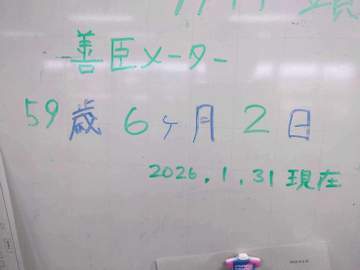 善臣メーター
59歳6ヶ月2日
2026.1.31現在